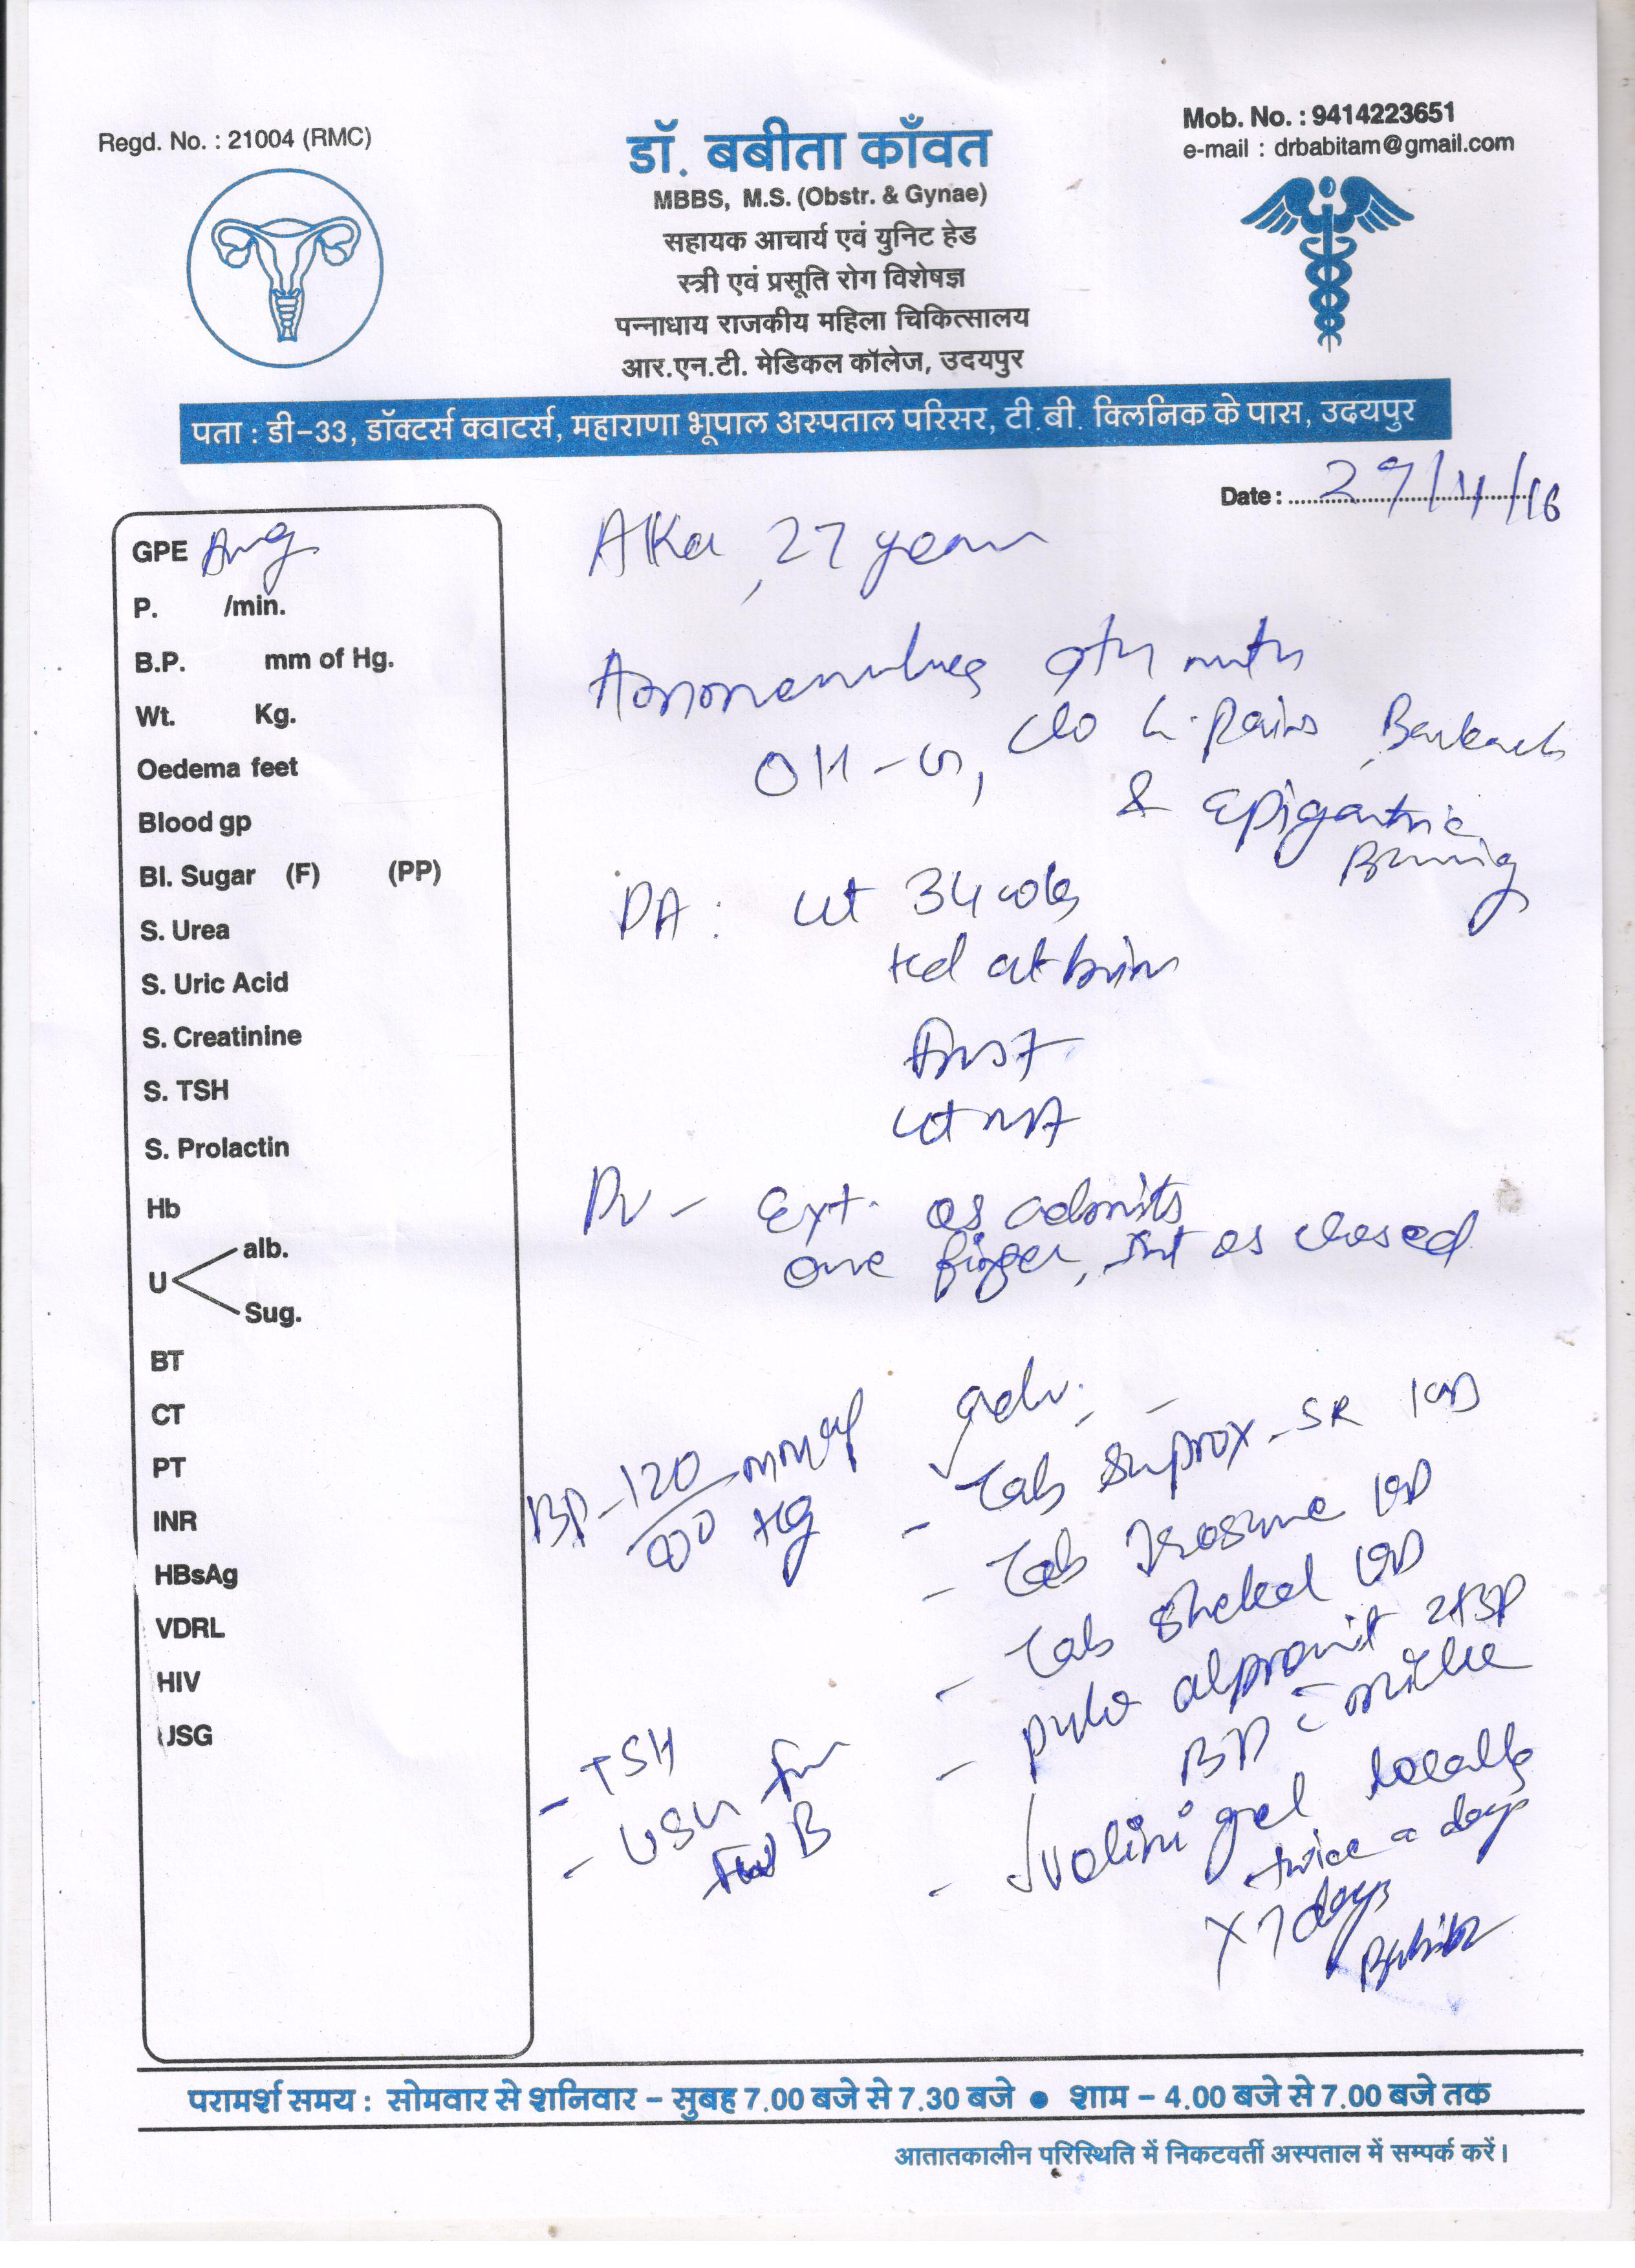 Regd. No. : 21004 (RMC)
Mob. No. : 9414223651
e-mail : drbabitam@gmail.com
डॉ. बबीता काँवत
MBBS, M.S. (Obstr. & Gynae)
सहायक आचार्य एवं युनिट हेड
स्त्री एवं प्रसूति रोग विशेषज्ञ
पन्नाधाय राजकीय महिला चिकित्सालय
आर.एन.टी. मेडिकल कॉलेज, उदयपुर
पता : डी-33, डॉक्टर्स क्वाटर्स, महाराणा भूपाल अस्पताल परिसर, टी.बी. क्लिनिक के पास, उदयपुर
Date : 29/11/16
GPE
P. /min.
B.P. mm of Hg.
Wt. Kg.
Oedema feet
Blood gp
Bl. Sugar (F) (PP)
S. Urea
S. Uric Acid
S. Creatinine
S. TSH
S. Prolactin
Hb
U alb.
Sug.
BT
CT
PT
INR
HBsAg
VDRL
HIV
USG
Alka, 27 years
9th mth
c/o Pains, Backach
& Epigastric
Burning
PA : ut 34 wks
Hd at brim
PV - Ext. os admits
one finger, Int os closed
Adv.
BP - 120 mm of
Hg
- Tab SR 1 OD
- Tab 1 OD
- Tab Shelcal 1 OD
- 2 TSP
BD milk
- Volini gel locally
twice a day
x 7 days
- TSH
- USG for
FWB
परामर्श समय : सोमवार से शनिवार – सुबह 7.00 बजे से 7.30 बजे ● शाम – 4.00 बजे से 7.00 बजे तक
आतातकालीन परिस्थिति में निकटवर्ती अस्पताल में सम्पर्क करें।